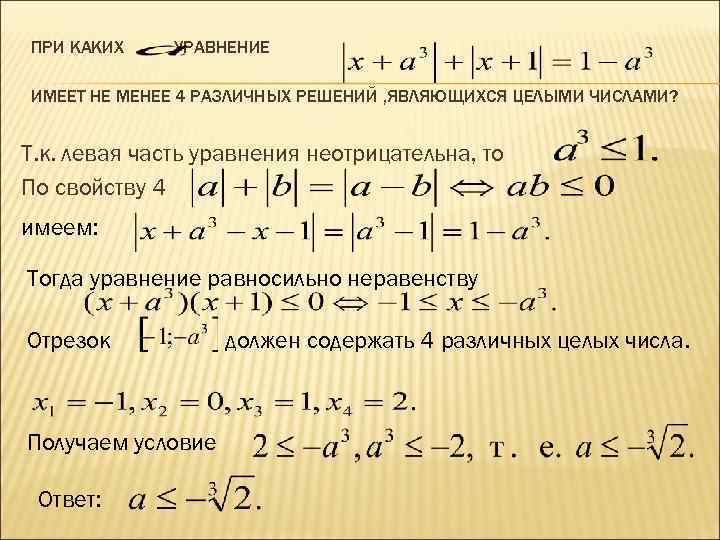 ПРИ КАКИХ УРАВНЕНИЕ |x + a³| + |x + 1| = 1 − a³
ИМЕЕТ НЕ МЕНЕЕ 4 РАЗЛИЧНЫХ РЕШЕНИЙ ,ЯВЛЯЮЩИХСЯ ЦЕЛЫМИ ЧИСЛАМИ?
Т.к. левая часть уравнения неотрицательна, то a³ ≤ 1.
По свойству 4 |a| + |b| = |a − b| ⇔ ab ≤ 0
имеем: |x + a³ − x − 1| = |a³ − 1| = 1 − a³.
Тогда уравнение равносильно неравенству
(x + a³)(x + 1) ≤ 0 ⇔ −1 ≤ x ≤ −a³.
Отрезок [−1; −a³] должен содержать 4 различных целых числа.
x₁ = −1, x₂ = 0, x₃ = 1, x₄ = 2.
Получаем условие 2 ≤ −a³, a³ ≤ −2, т. е. a ≤ −∛2.
Ответ: a ≤ −∛2.